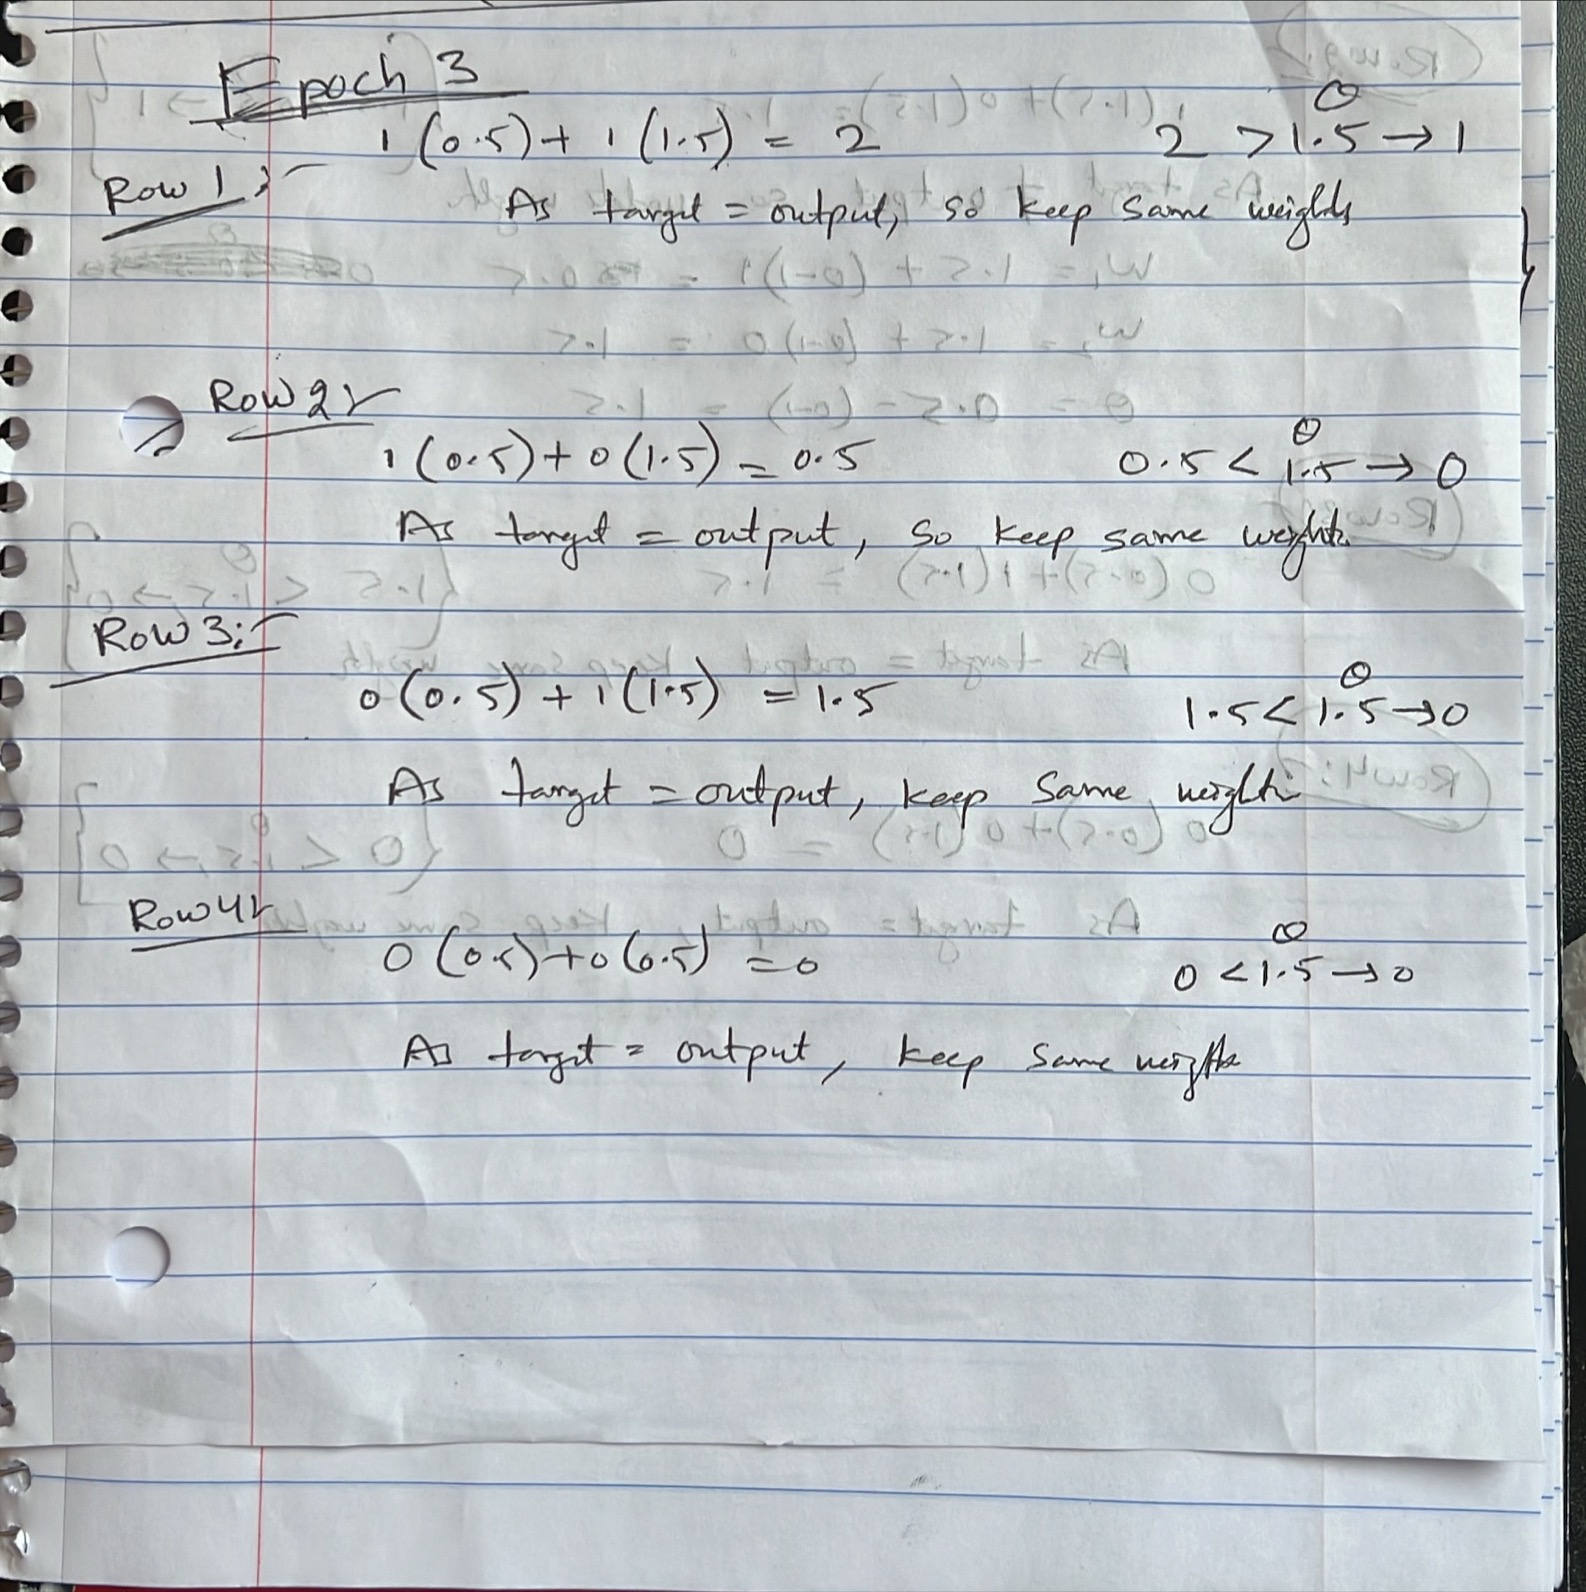 Epoch 3
1 (0.5) + 1 (1.5) = 2 2 > 1.5 → 1
θ
Row 1 :-
As target = output, so keep same weights
Row 2 :-
1 (0.5) + 0 (1.5) = 0.5 0.5 < 1.5 → 0
θ
As target = output, so keep same weights
Row 3 :-
0 (0.5) + 1 (1.5) = 1.5 1.5 < 1.5 → 0
θ
As target = output, keep same weights
Row 4 :-
0 (0.5) + 0 (0.5) = 0 0 < 1.5 → 0
θ
As target = output, keep same weights